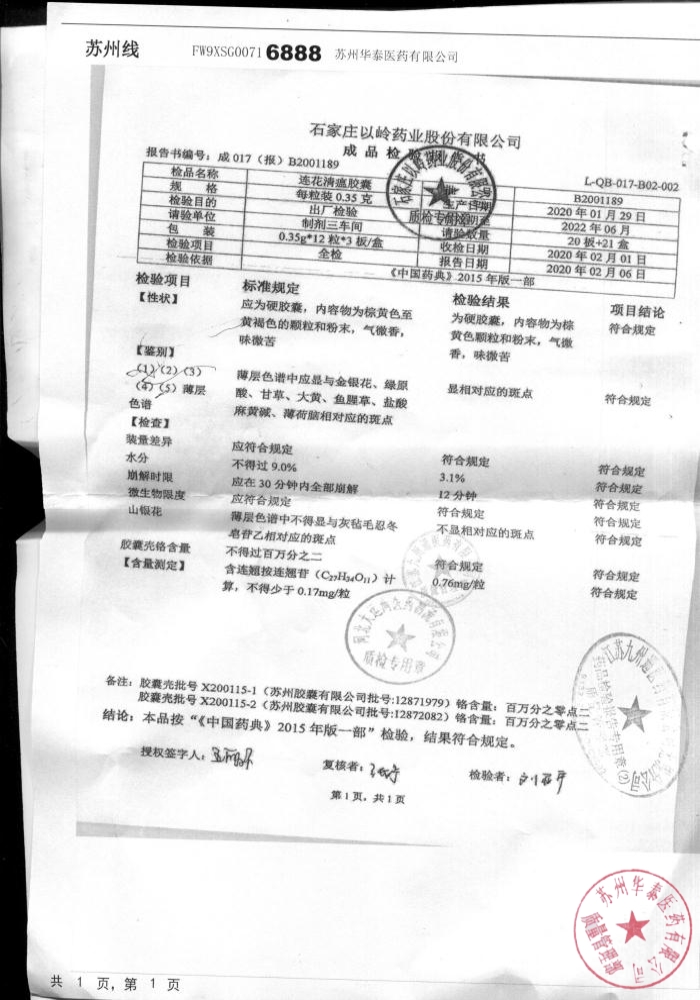 苏州线 FW9XSG0071 6888 苏州华泰医药有限公司
石家庄以岭药业股份有限公司
成品检
报告书编号：成 017（报）B2001189 L-QB-017-B02-002
检品名称 连花清瘟胶囊 B2001189
规 格 每粒装 0.35 克 生产日期 2020 年 01 月 29 日
检验目的 出厂检验 2022 年 06 月
请验单位 制剂三车间 请验数量 20 板+21 盒
包 装 0.35g*12 粒*3 板/盒 收检日期 2020 年 02 月 01 日
检验项目 全检 报告日期 2020 年 02 月 06 日
检验依据 《中国药典》2015 年版一部
检验项目 标准规定 检验结果 项目结论
【性状】 应为硬胶囊，内容物为棕黄色至 为硬胶囊，内容物为棕 符合规定
黄褐色的颗粒和粉末，气微香， 黄色颗粒和粉末，气微
味微苦 香，味微苦
【鉴别】
(1) (2) (3) 薄层色谱中应显与金银花、绿原 显相对应的斑点 符合规定
(4) (5) 薄层 酸、甘草、大黄、鱼腥草、盐酸
色谱 麻黄碱、薄荷脑相对应的斑点
【检查】
装量差异 应符合规定 符合规定 符合规定
水分 不得过 9.0% 3.1% 符合规定
崩解时限 应在 30 分钟内全部崩解 12 分钟 符合规定
微生物限度 应符合规定 符合规定 符合规定
山银花 薄层色谱中不得显与灰毡毛忍冬 不显相对应的斑点 符合规定
皂苷乙相对应的斑点
胶囊壳铬含量 不得过百万分之二 符合规定 符合规定
【含量测定】 含连翘按连翘苷（C27H34O11）计 0.76mg/粒 符合规定
算，不得少于 0.17mg/粒
质检专用章
备注：胶囊壳批号 X200115-1（苏州胶囊有限公司批号:12871979）铬含量：百万分之零点二
胶囊壳批号 X200115-2（苏州胶囊有限公司批号:12872082）铬含量：百万分之零点二
结论：本品按“《中国药典》2015 年版一部”检验，结果符合规定。
授权签字人： 复核者： 检验者：
第 1 页，共 1 页
苏州华泰医药有限公司
质量管理部
共 1 页，第 1 页